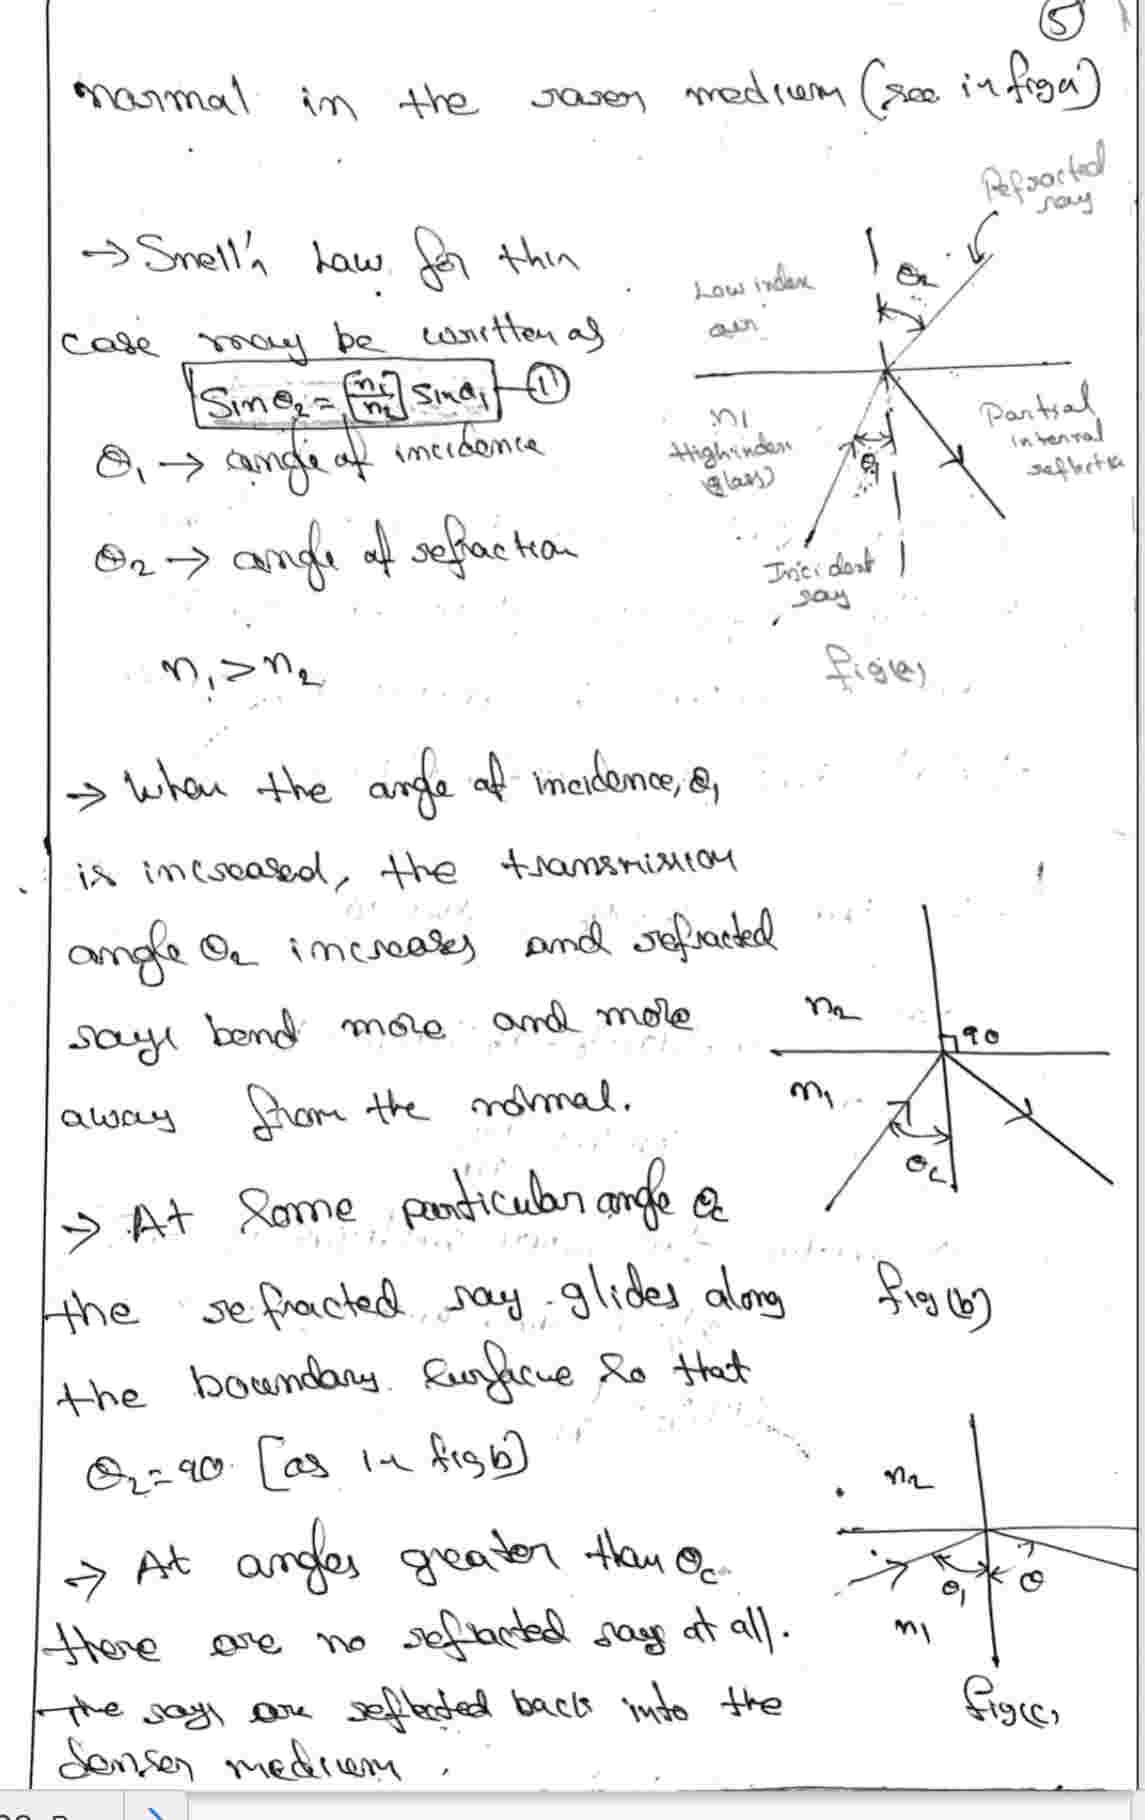 5
normal in the rarer medium (see in fig a)
Refracted
ray
→ Snell's Law for this
case may be written as
Sinθ2 = [n1/n2] Sinθ1 — 1
θ1 → angle of incidence
θ2 → angle of refraction
n1 > n2
Low index
air
θ2
n1
High index
(glass)
θ1
Partial
internal
reflection
Incident
ray
fig(a)
→ When the angle of incidence, θ1
is increased, the transmission
angle θ2 increases and refracted
rays bend more and more
away from the normal.
n2
90
n1
θc
fig(b)
→ At some particular angle θc
the refracted ray glides along
the boundary surface so that
θ2 = 90 [as in fig b]
→ At angles greater than θc
there are no refracted rays at all.
The rays are reflected back into the
denser medium.
n2
θ1
θ
n1
fig(c)